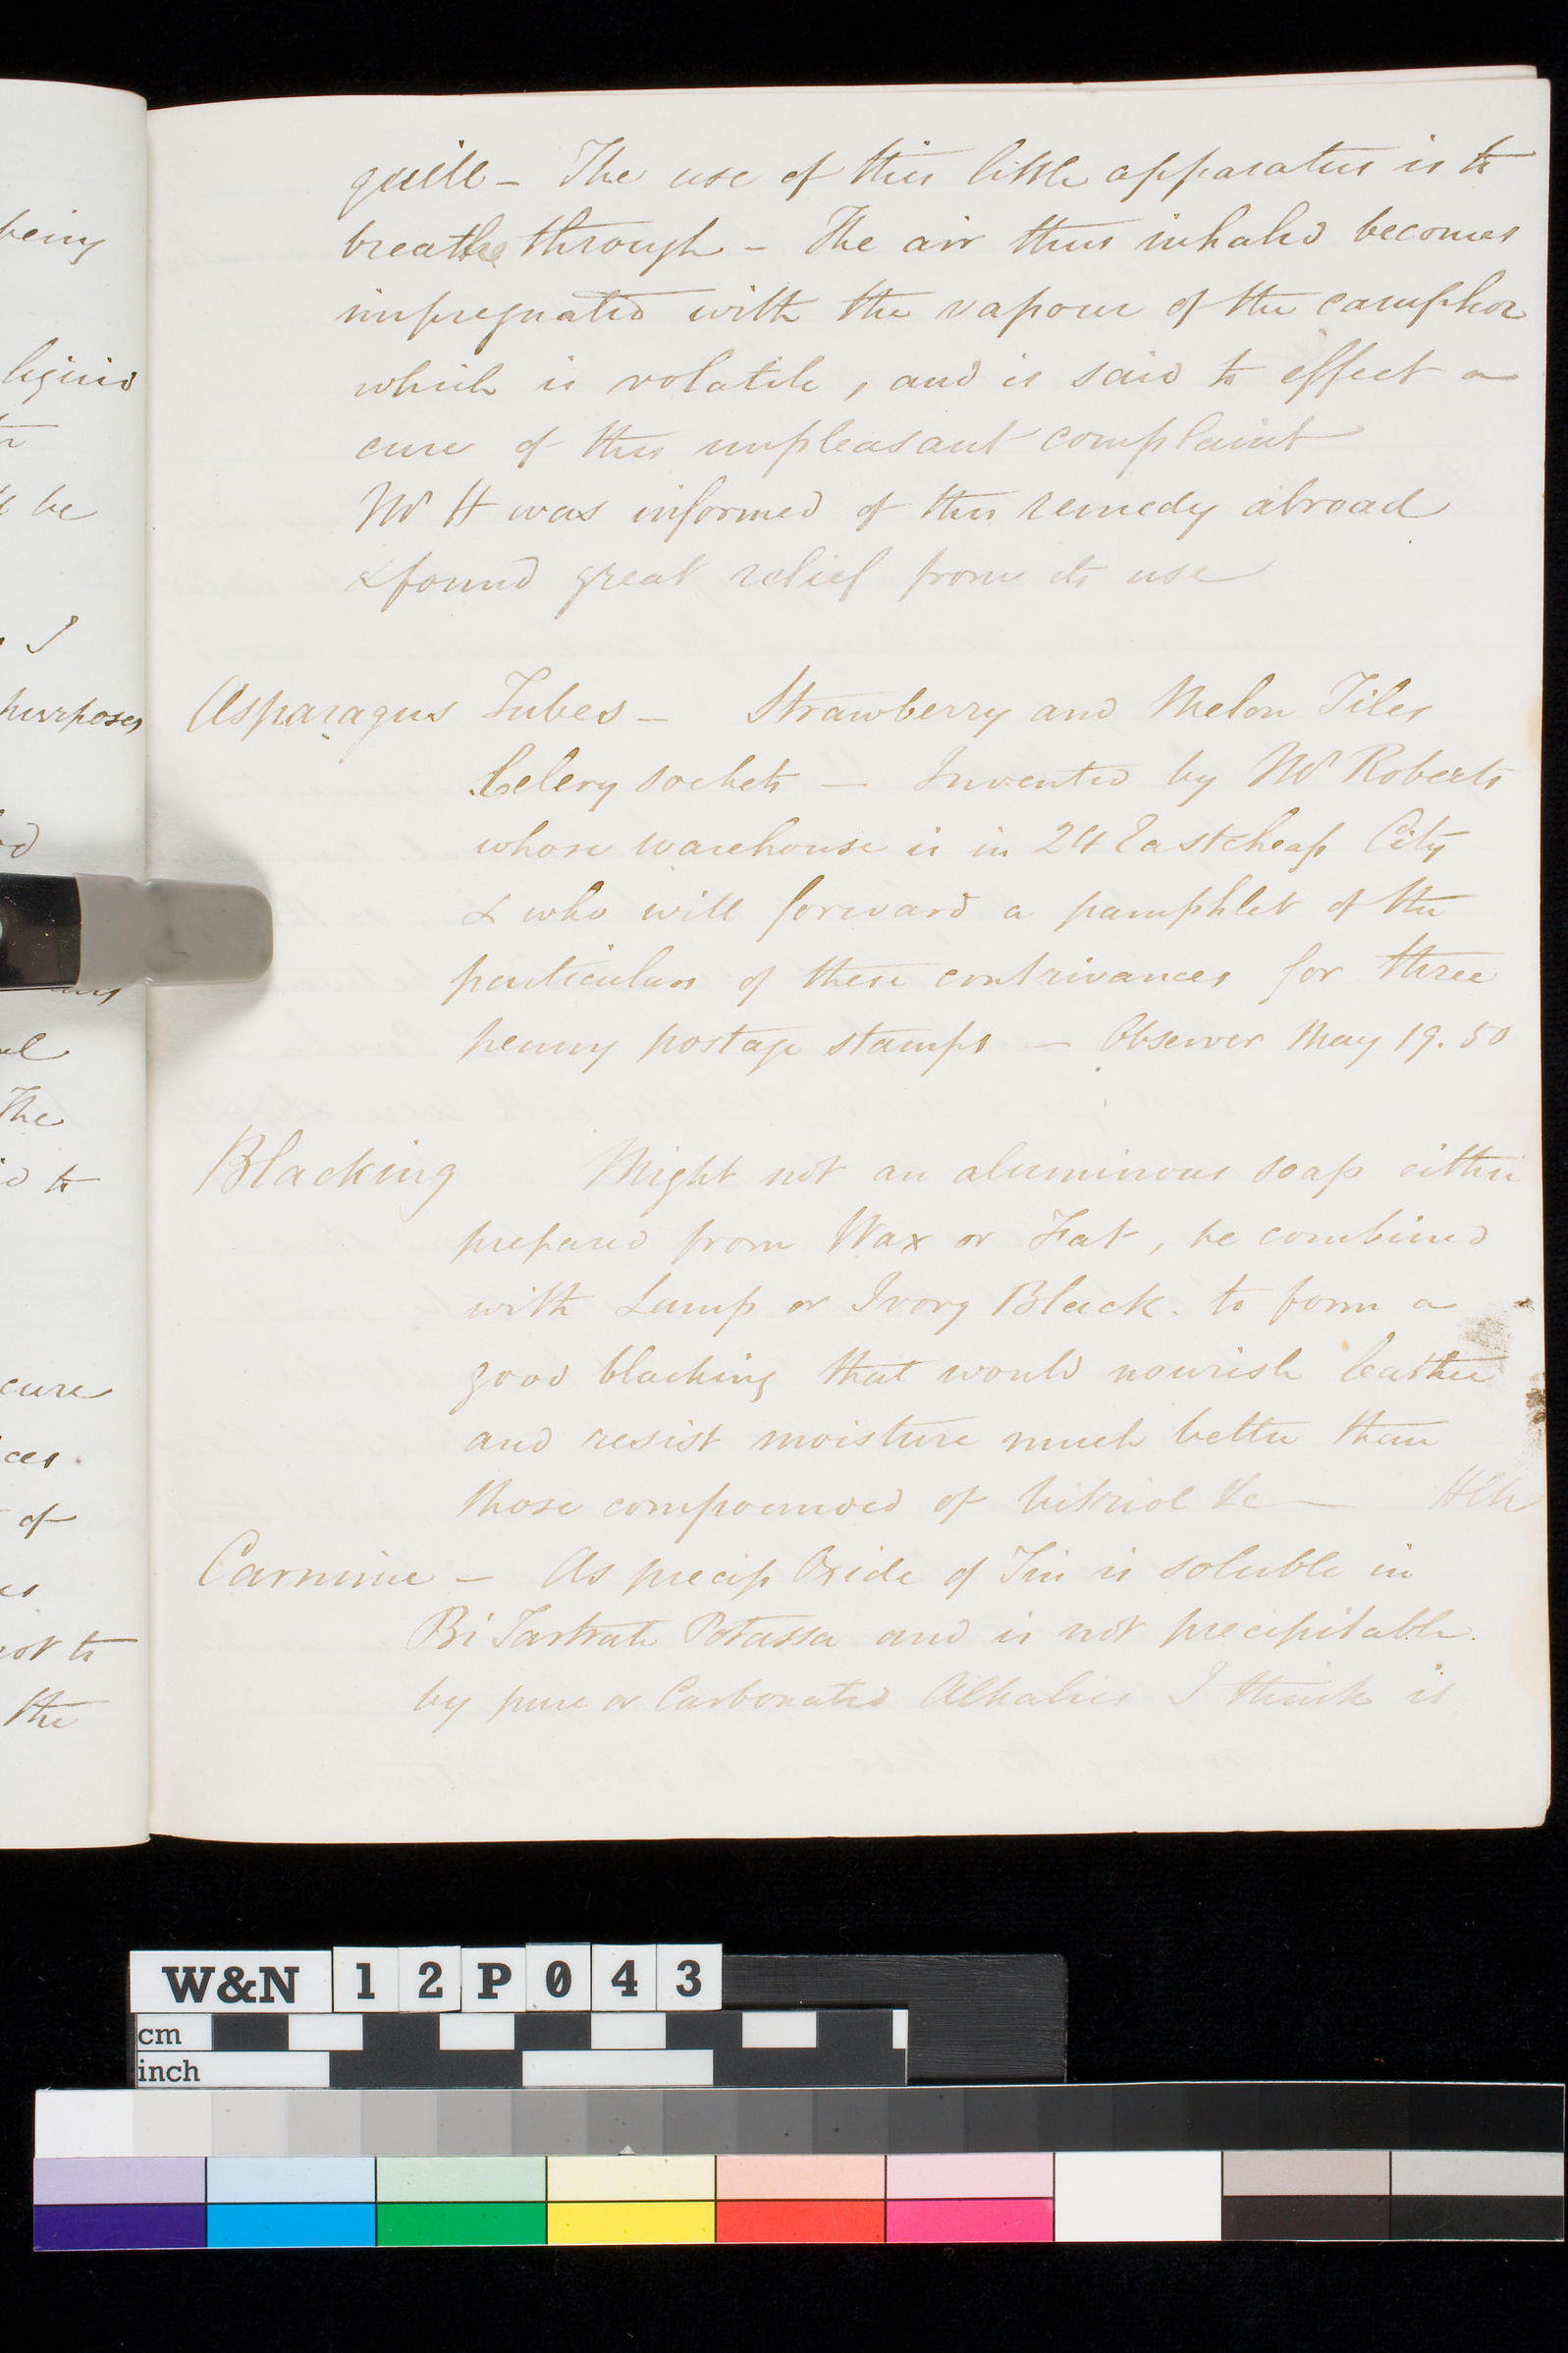 quill - The use of this little apparatus is to
breathe through - The air thus inhaled becomes
impregnated with the vapour of the camphor
which is volatile, and is said to effect a
cure of this unpleasant complaint
Mr H was informed of this remedy abroad
& found great relief from its use
Asparagus Tubes - Strawberry and Melon Tiles
Celery sockets - Invented by Mr Roberts
whose warehouse is in 24 Eastcheap City
& who will forward a pamphlet of the
particulars of these contrivances for three
penny postage stamps - Observer May 19. 50
Blacking Might not an aluminous soap either
prepared from Wax or Fat, be combined
with Lamp or Ivory Black. to form a
good blacking that would nourish leather
and resist moisture much better than
those compounded of Vitriol &c -
Carmine - As precip Oxide of Tin is soluble in
Bi Tartrate Potassa and is not precipitable
by pure or Carbonated Alkalies I think is
being
liquid
be
I
purposes
The
to
cure
ces.
of
not to
the
W&N 12P043
cm
inch